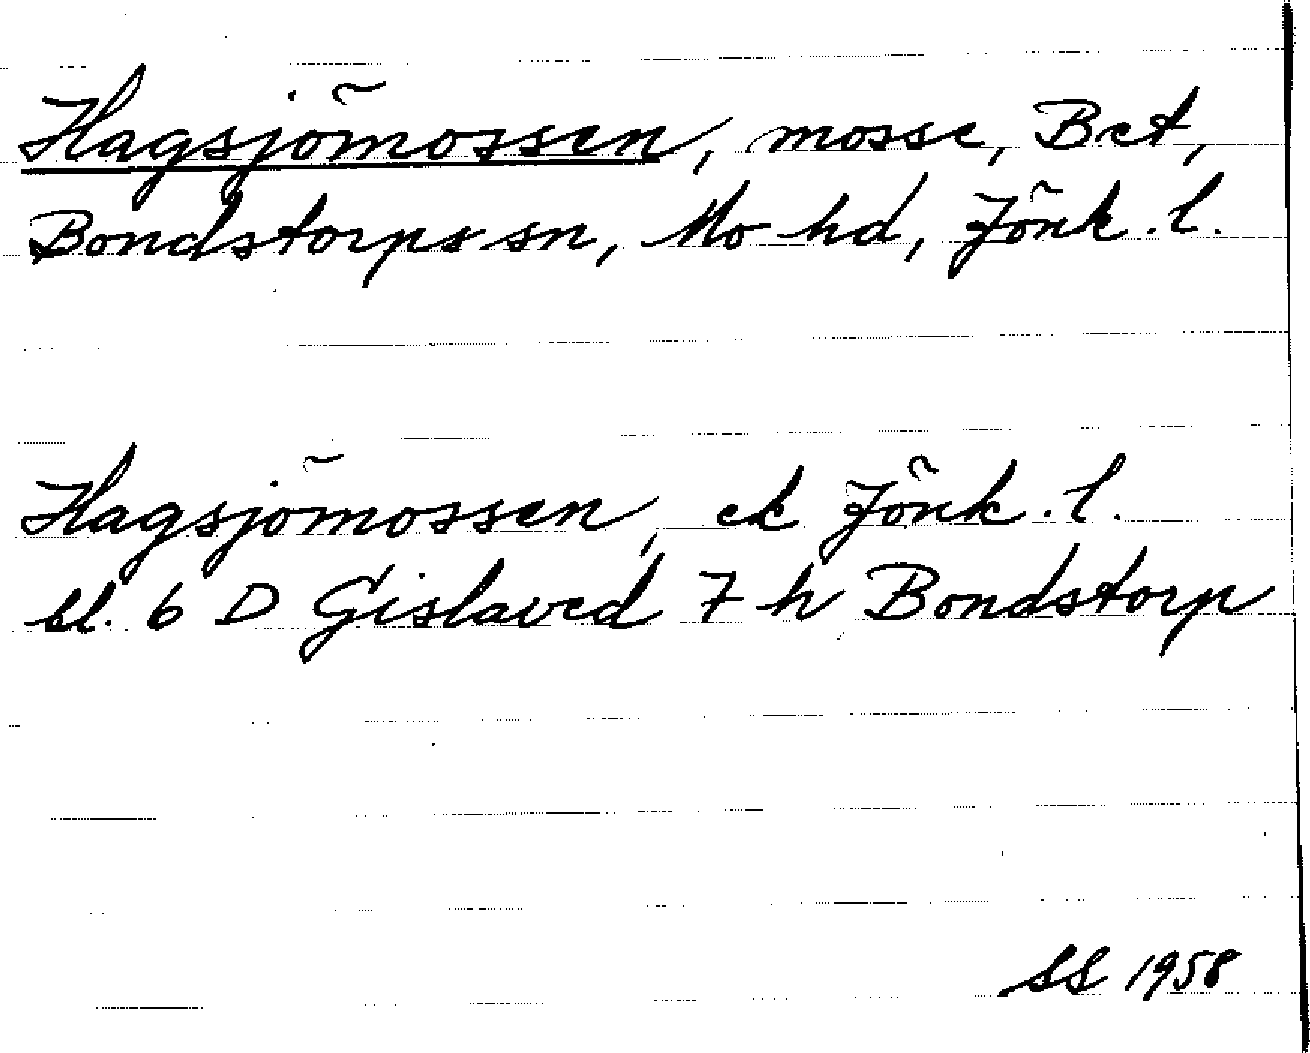 Hagsjömossen, mosse, Bet,
Bondstorps sn, Mo hd, Jönk. l.
Hagsjömossen, ek Jönk. l.
bl. 6 D Gislaved 7 h Bondstorp
SS 1958